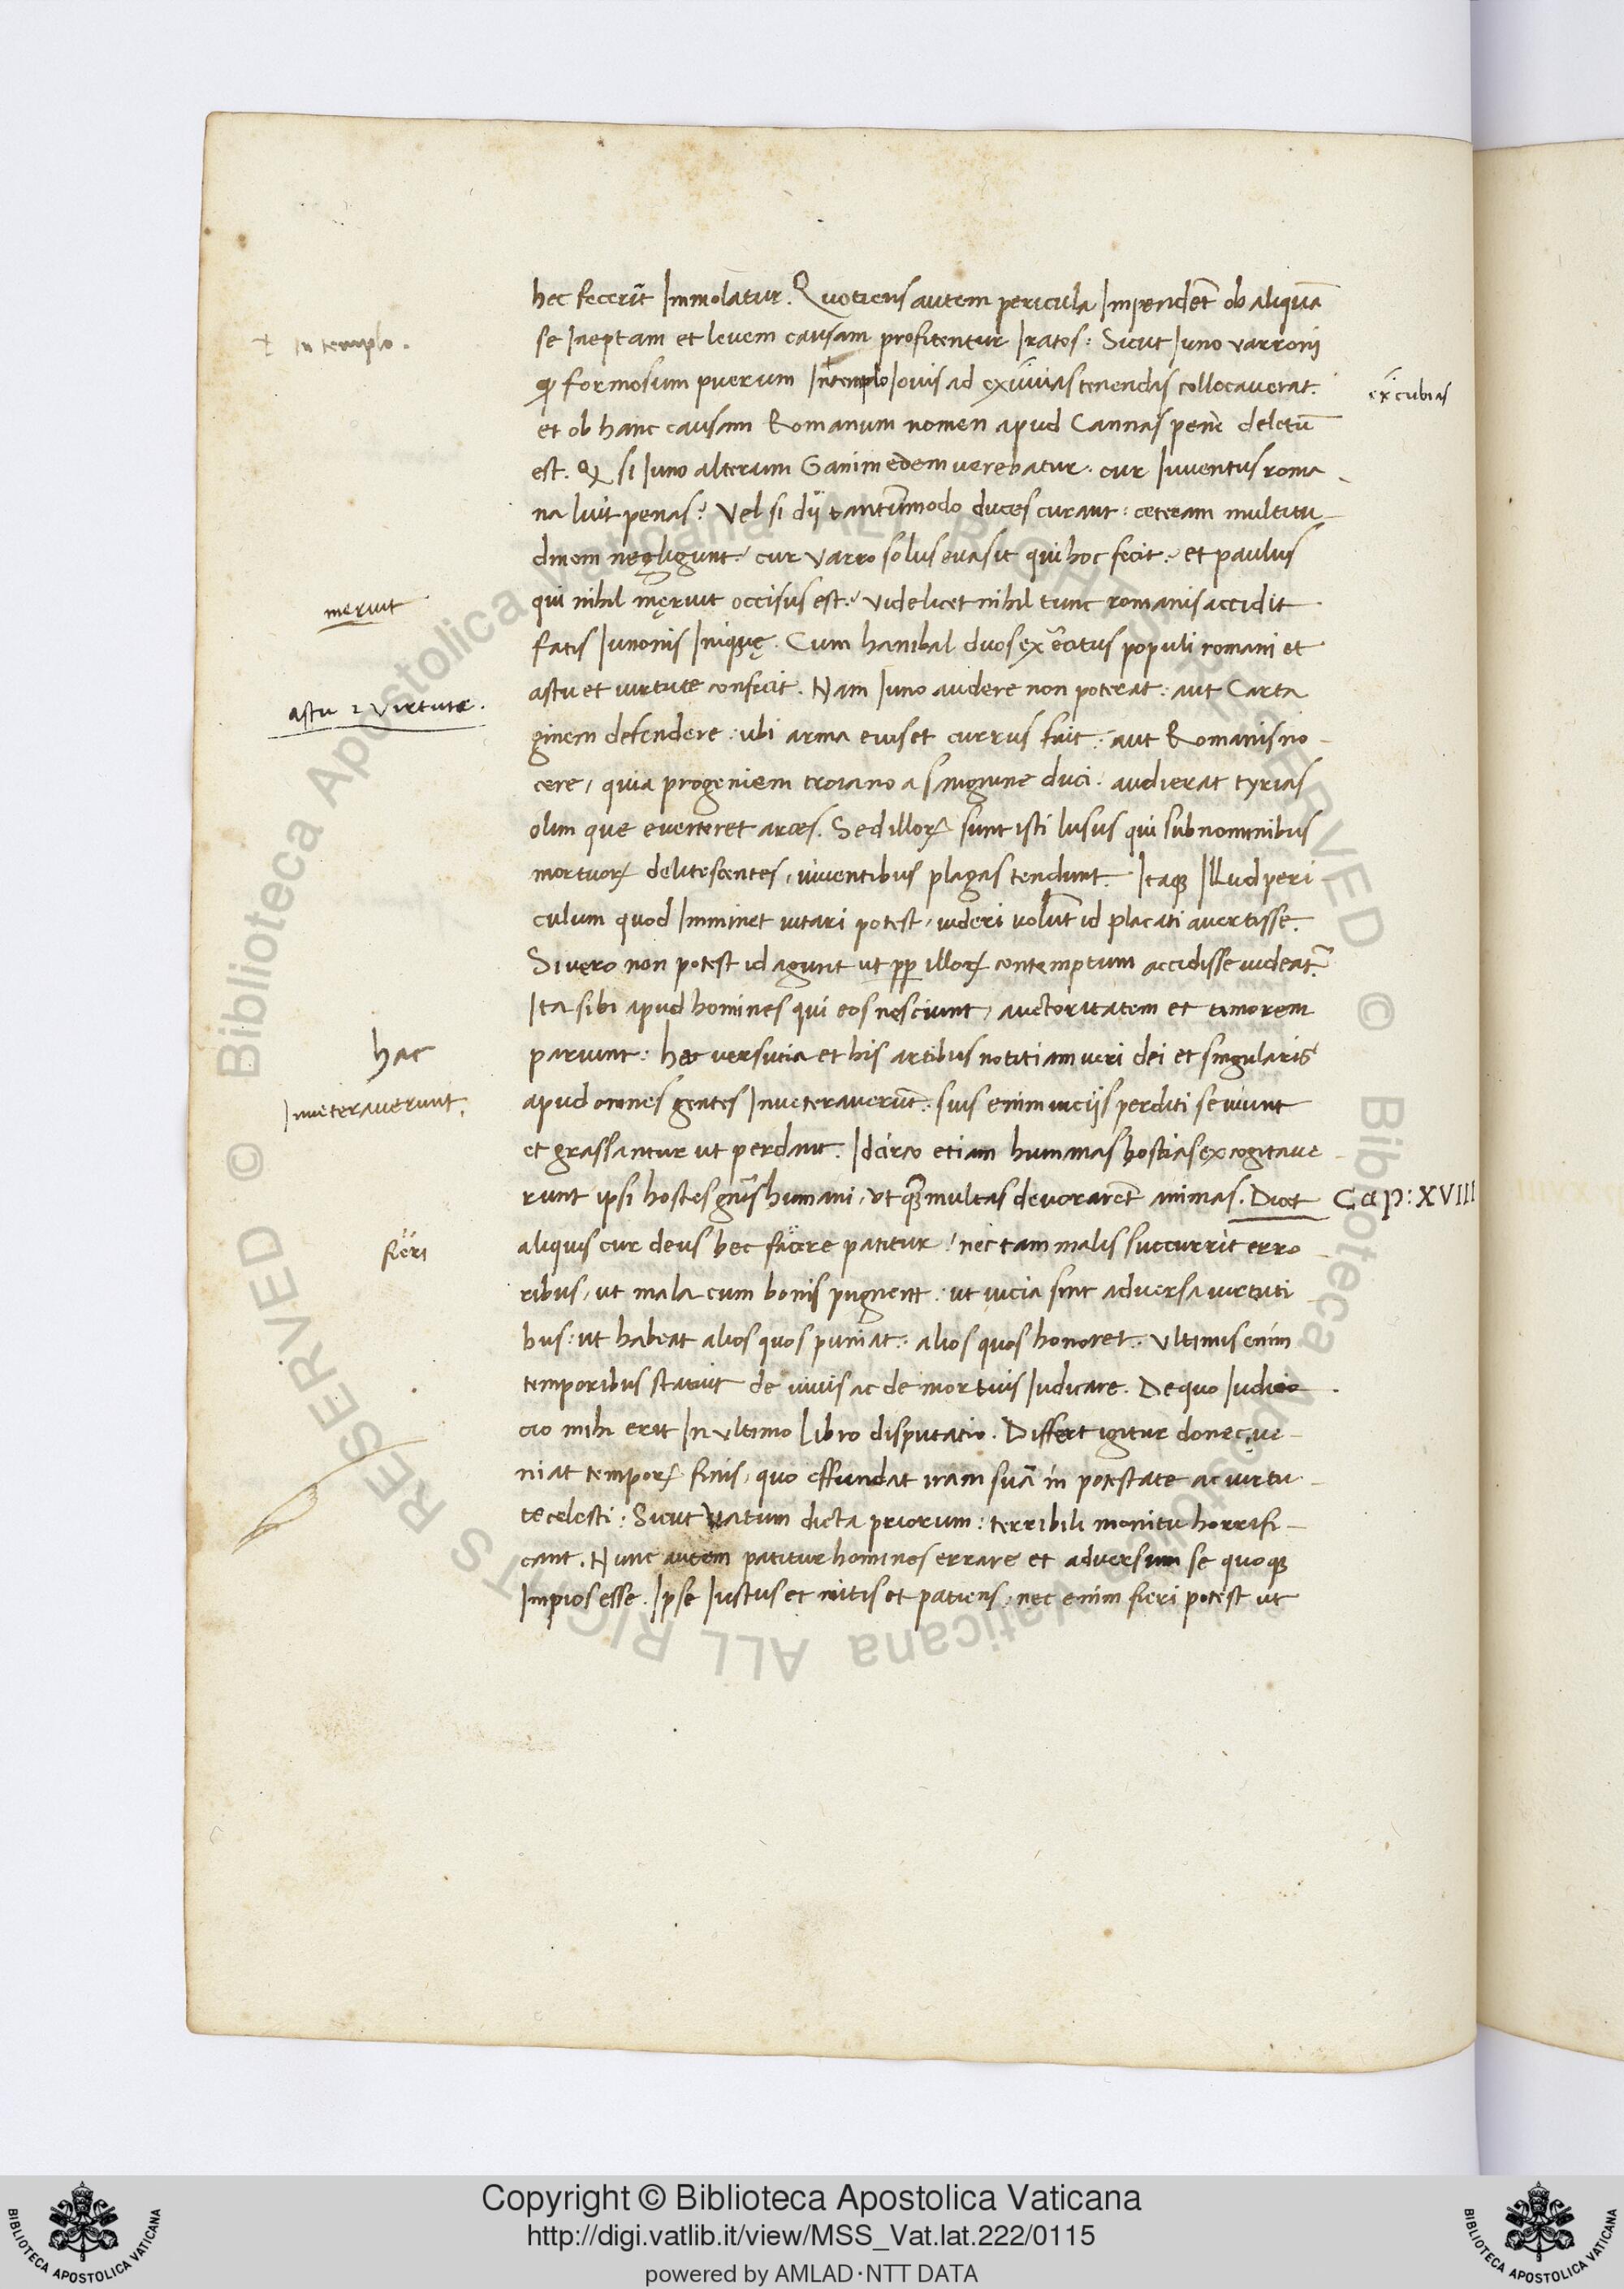 hec fecerūt Immolatur. Quotiens autem pericula Impendēt ob aliquā
se Ineptam et levem causam profitentur Iratos: Sicut Iuno varroni
✝ In templo.
ꝙ formosum puerum In templo Iovis ad exuvias tenendas collocaverat.
excubias
et ob hanc causam Romanum nomen apud Cannas pene deletū
est. Ꝙ si Iuno alterum Ganimedem verebatur. cur Iuventus roma-
na luit penas? Vel si dij tantūmodo duces curant: ceteram multitu-
dinem negligunt. cur varro solus evasit qui hoc fecit. et paulus
meruit
qui nihil męruit occisus est. videlicet nihil tunc romanis accidit
fatis Iunonis Iniquę. Cum hanibal duos exercitus populi romani et
astu 2 virtute.
astu et virtute confecit. Nam Iuno audere non poterat: aut Carta
ginem defendere: ubi arma eius et currus fuit: aut Romanis no-
cere, quia progeniem troiano a sanguine duci: audierat tyrias
olim que everteret arces. Sed illoꝝ sunt isti lusus qui sub nominibus
mortuoꝝ delitescentes, viventibus plagas tendunt. Itaqꝫ Illud peri-
culum quod Imminet vitari potest, videri volūt id placati avertisse.
Si vero non potest id agunt ut ꝓp illoꝝ contemptum accidisse videat᷑.
Ita sibi apud homines qui eos nesciunt, auctoritatem et timorem
hac
pariunt: hec versutia et his artibus notitiam veri dei et singularis
Inveteraverunt.
apud omnes gentes Inveteraverūt: suis enim viciis perditi seviunt
et grassantur ut perdant. Idcirco etiam humanas hostias excogitave-
runt ipsi hostes gn̄is humani, ut qꝫ multas devorarēt animas. Dicet
Cap: XVIII
fieri
aliquis cur deus hec facere patitur? nec tam malis succurrit erro-
ribus, ut mala cum bonis pugnent: ut vicia sint adversa virtuti-
bus: ut habeat alios quos puniat: alios quos honoret. Ultimis enim
temporibus statuit de vivis ac de mortuis Iudicare. De quo Iudicio
cio mihi erit In ultimo Libro disputatio. Differt igitur donec ve-
niat tempoꝝ finis, quo effundat iram suā in potestate ac virtu-
te celesti: Sicut vatum dicta priorum: terribili monitu horrifi-
cant. Nunc autem patitur homines errare et adversum se quoqꝫ
Impios esse. Ipse Iustus et mitis et patiens, nec enim fieri potest ut
© Biblioteca Apostolica Vaticana ALL RIGHTS RESERVED © Biblioteca Apostolica Vaticana ALL RIGHTS RESERVED
Copyright © Biblioteca Apostolica Vaticana
http://digi.vatlib.it/view/MSS_Vat.lat.222/0115
powered by AMLAD·NTT DATA
BIBLIOTECA APOSTOLICA VATICANA
BIBLIOTECA APOSTOLICA VATICANA